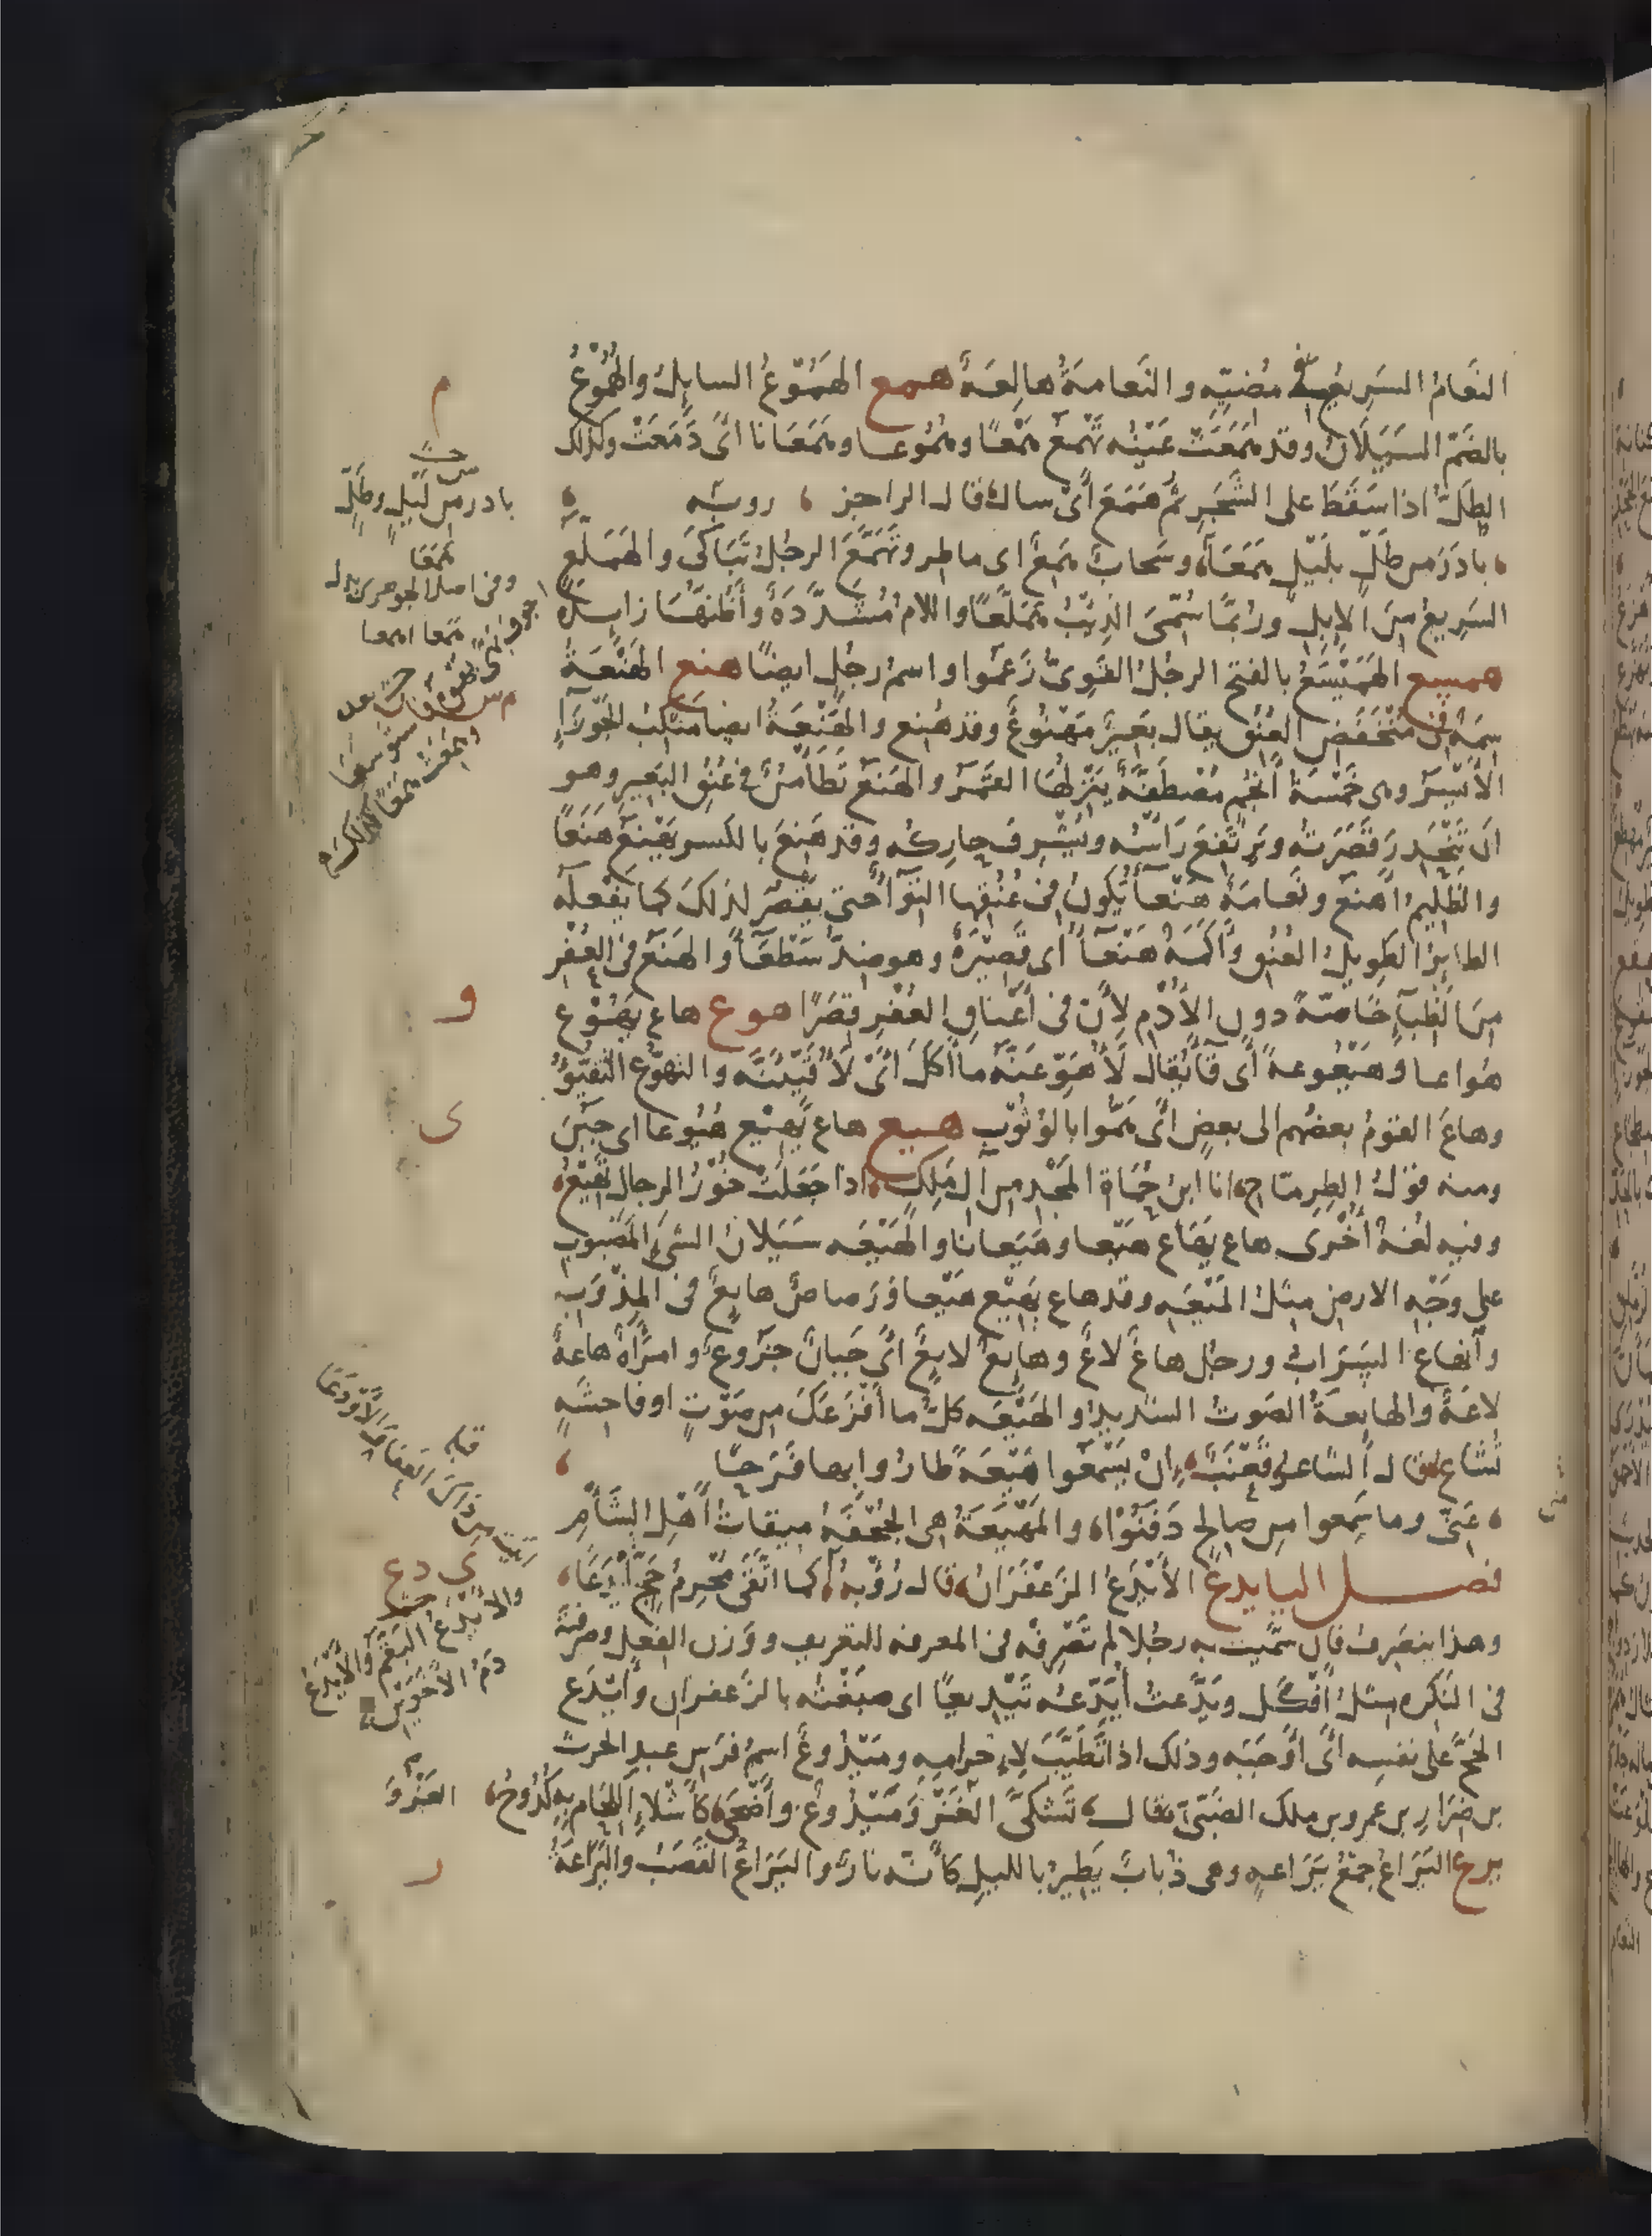 النَّعامُ السَريعُ في مُضيّه والنَعامةُ هالِعَةٌ همع الهَمُوعُ السايلُ والهُمُوعُ
بالضَمّ السَيَلانُ وقد هَمَعَتْ عَيْنُه تَهْمَعُ هَمْعًا وهُمُوعا وهَمَعَانا اىْ دَمَعَتْ وكذلك
الطَلُّ اذا سَقَطَ على الشَجَرِ ثُمَّ هَمَعَ اىْ سال قال الراجز روبَه
بادَرَ من طَلٍّ بلَيْلٍ هَمَعَا وسَحابٌ هَمِعٌ اى ماطِر وتَهَمَّعَ الرجُلُ تَبَاكَى والهَمَلَّعُ
السَرِيعُ مِنَ الإبِلِ ورُبَّما سُمِّىَ الذِئْبُ هَمَلَّعًا واللام مُشَدَّدَةٌ وأَظُنّهَا زايدة
هميسع الهَمَيْسَعُ بالفتح الرجُلُ القَوِىُّ زَعَموا واسمُ رجُلٍ ايضًا هنع الهَنْعَةُ
سِمَةٌ فى مُنْخَفَضِ العُنُق يقال بَعِيرٌ مَهْنُوعٌ وقد هُنِع والهَنْعَةُ ايضا مَنْكِبُ الجَوْزَاءِ
الأَيْسَرُ وهى خَمْسَةُ أَنْجُمٍ مُصْطَفَّةٌ يَنْزِلُهَا القَمَرُ والهَنَعُ تَطَامُنٌ فى عُنُقِ البَعِير وهو
ان تَنْحَدِرَ قَصَرَتُه ويَرْتَفِعَ رَأْسُه ويُشْرِفَ حارِكُه وقد هَنِعَ بالكسر يَهْنَعُ هَنَعًا
والظَلِيمُ اهْنَعُ ونَعامَةٌ هَنْعآءُ يَكونُ فى عُنُقِها التِوَآءٌ حتى يَقْصُرَ لذلكَ كما يَفْعلُه
الطايرُ الطَوِيلُ العُنُقِ وأَكَمَةٌ هَنْعَآءُ اى قَصِيْرَةٌ وهو ضِدُّ سَطْعَآءَ والهَنَعُ فى العُفْرِ
مِنَ الظِبآءِ خَاصّةً دون الأُدْمِ لِأَنَّ فى أَعْناقِ العُفْرِ قِصَرًا هوع هاع يَهُوْعُ
هُواعا وهَيْعُوعةً أى قآءَ يُقال لَأُهَوِّعَنَّه ما أَكَلَ اىْ لَأُقَيِّئَنَّه والتهوُّع التَقَيُّؤُ
وهاعَ القومُ بعضُهم الى بعضٍ اىْ هَمُّوا بالوُثُوْبِ هيع هاع يَهِيْعُ هُيُوعا اى جَبُنَ
ومنه قوْلُ الطِرِمّاح انا ابنُ حُمَاةِ المَجْدِ من آلِ مَالِكٍ اذا جَعَلَتْ خُوْرُ الرجالِ تَهِيْعُ
وفيه لغةٌ أُخْرَى هاع يَهَاع هَيْعا وهَيَعانا والهَيْعَه سَيَلانُ الشىءِ المَصْبُوبِ
على وَجْهِ الارضِ مِثْلُ المَيْعَه وقد هاع يَهِيْع هَيْعا ورَصاصٌ هايِعٌ فى المِذْوَبِ
وأنْهاع السَرابُ ورجُل هاعٌ لاعٌ وهايِعٌ لايِعٌ اىْ جَبانٌ جَزُوعٌ وامرأةٌ هاعةٌ
لاعَةٌ والهايِعةُ الصَوتُ الشديدُ والهَيْعَه كلُّ ما أَفْزَعَكَ من صَوْتٍ او فاحِشَهٍ
تُشَاع قال الشاعر قَعْنَبٌ إنْ يَسْمَعُوا هَيْعَةً طارُوا بِها فَرَحًا
عَنِّى وما سَمِعوا من صالِحٍ دَفَنُوْا والمَهْيَعَةُ هى الجُحْفَةُ ميقاتُ أَهْلِ الشَأْمِ
فصــل اليا يدع الأَيْدَعُ الزَعْفَرانُ قال رُؤْبةُ كما اتَّقَى مُحْرِمُ حَجٍّ أَيْدَعَا
وهذا ينصَرِف فان سَمَّيْت به رجُلا لم تَصْرِفْه فى المعرفه للتعريف ووَزن الفِعل وصرفتَه
فى النَكِره مثلُ أَفْكَل ويَدَّعتُ أُيَدِّعُه تَيْدِيعًا اى صبَغْتُه بالزَعفران وأَيْدَعَ
الحَجَّ على نفسِه اىْ أَوْجَبَه وذلك اذا تَطَيَّبَ لِإحرامِه ومَيْدُوعٌ اسمُ فَرَسِ عبدِ الحرث
بن ضِرارِ بن عمرو بن ملك الضَبّىّ قال تَشَكَّى الغَزْوَ مَيْدُوعٌ وأَضْحَى كأَشْلاءِ اللِحام به كُدُوحُ
يرع اليَرَاعُ جمْعُ يَرَاعهٍ وهى ذُبابٌ يَطِيرُ بالليلِ كأنّه نارٌ واليَرَاعُ القَصَبُ واليَرَاعَةُ
م
بادر من لَيْلٍ وطَلٍّ
هَمَعَا
وفى اصل الجوهرى بدل
و
ى
قبله
ى دع
والأَيْدَعُ البَقَّمُ والأَيْدَعُ
دَمُ الأَخَوَيْنِ
الغَزْوَ
ر